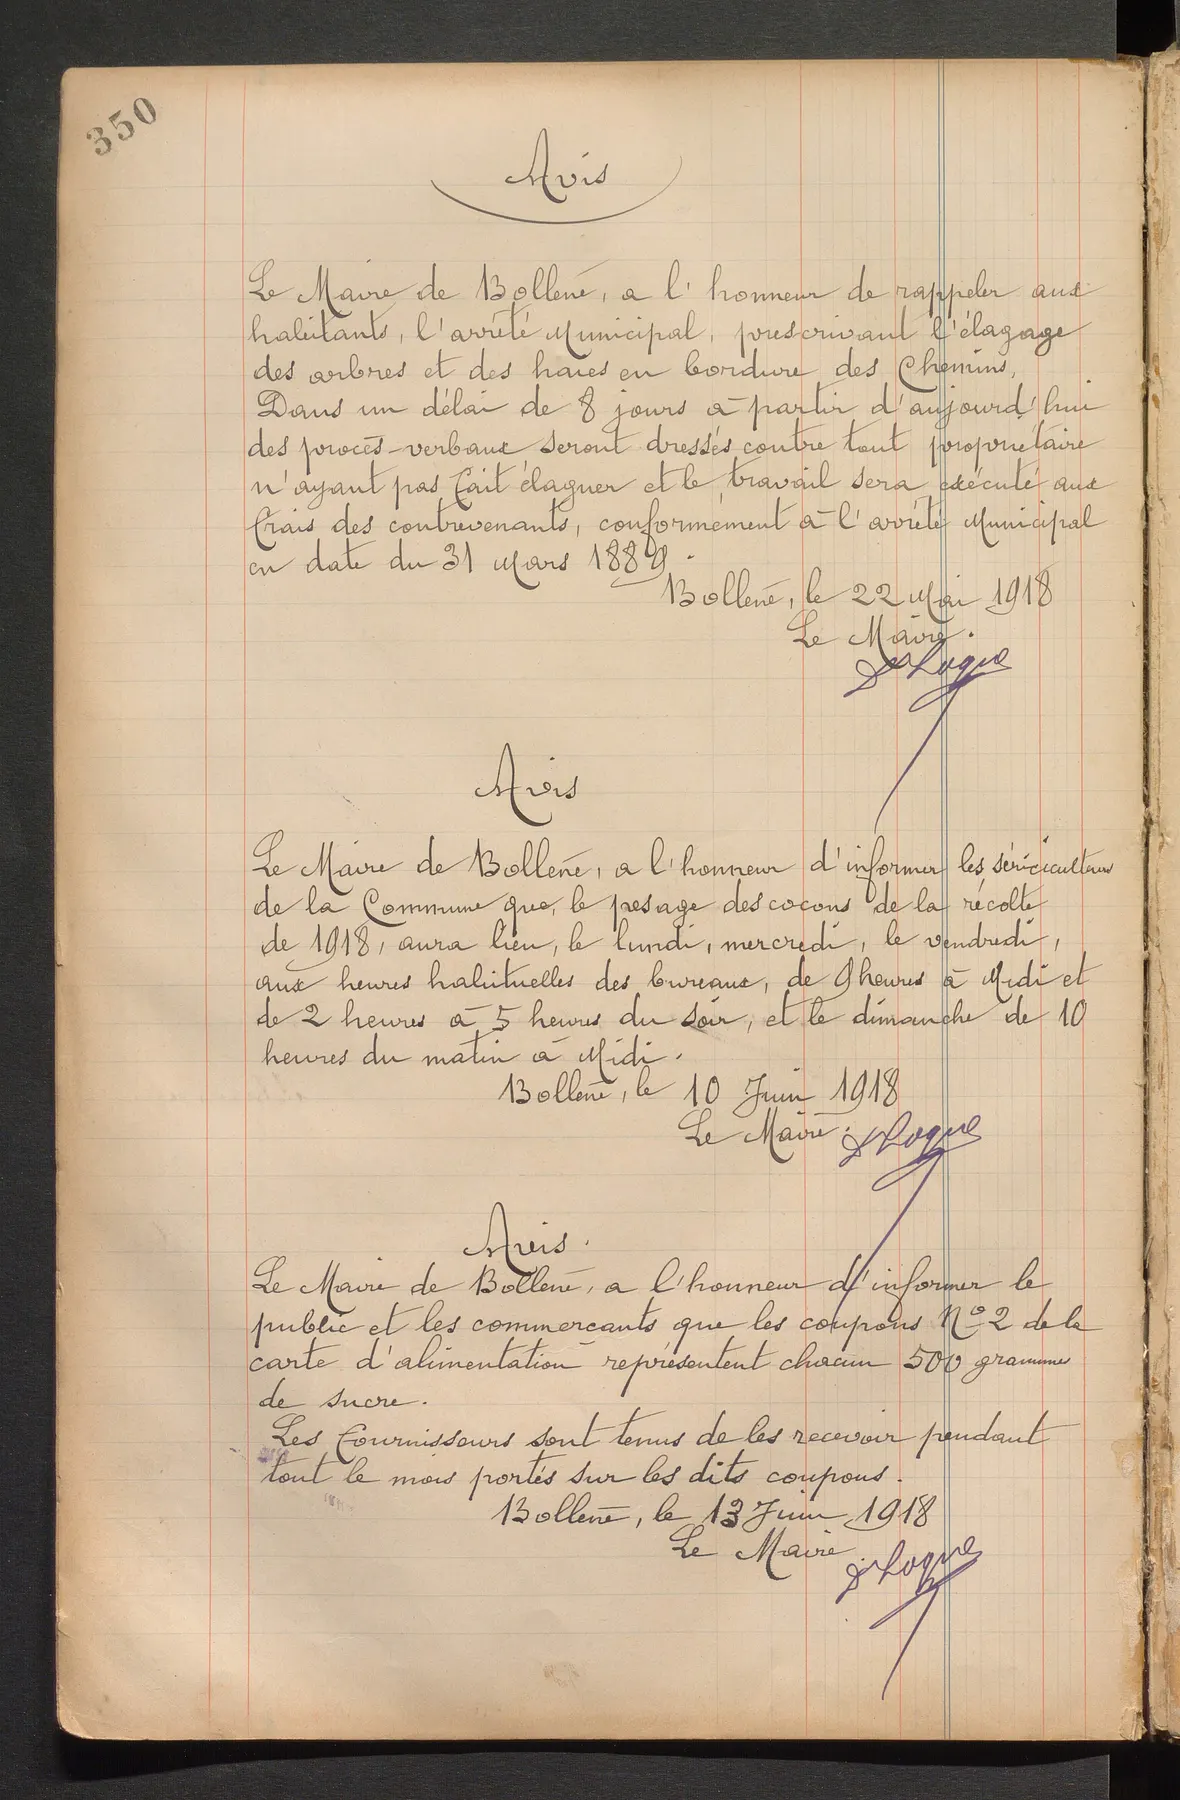 350
Avis
Le Maire de Bollène, a l'honneur de rappeler aux
habitants, l'arrêté Municipal, prescrivant l'élagage
des arbres et des haies en bordure des Chemins.
Dans un délai de 8 jours à partir d'aujourd'hui
des procès-verbaux seront dressés contre tout propriétaire
n'ayant pas fait élaguer et le travail sera exécuté aux
frais des contrevenants, conformement à l'arrêté Municipal
en date du 31 Mars 1889.
Bollène, le 22 Mai 1918
Le Maire.
Avis
Le Maire de Bollène, a l'honneur d'informer les sériciculteurs
de la Commune que, le pesage des cocons de la récolte
de 1918, aura lieu, le lundi, mercredi, le vendredi,
aux heures habituelles des bureaux, de 9 heures à Midi et
de 2 heures à 5 heures du soir, et le dimanche de 10
heures du matin à Midi.
Bollène, le 10 Juin 1918
Le Maire.
Avis.
Le Maire de Bollène, a l'honneur d'informer le
public et les commerçants que les coupons No 2 de la
carte d'alimentation représentent chacun 500 grammes
de sucre.
Les fournisseurs sont tenus de les recevoir pendant
tout le mois portés sur les dits coupons.
Bollène, le 13 Juin 1918
Le Maire